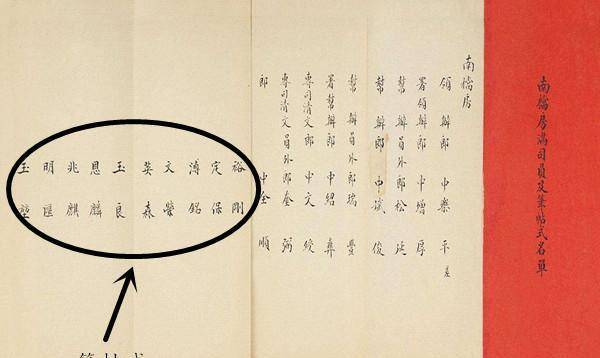 南檔房滿司員及筆帖式名單
南檔房
領辦郎中樂平 差
署領辦郎中增厚
幫辦員外郎松延
幫辦郎中誠俊
幫辦員外郎瑞豐
署幫辦郎中紹彝
專司清文郎中文綬
專司清文員外郎奎弼
郎中全順
裕剛
定保
溥銘
文榮
英森
玉良
恩麟
兆麒
明匯
玉堃